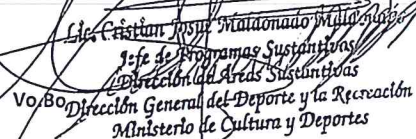 Lic. Cristian Josue Maldonado
Jefe de Programas Sustantivos
Dirección de Areas Sustantivas
Vo.Bo. Dirección General del Deporte y la Recreación
Ministerio de Cultura y Deportes